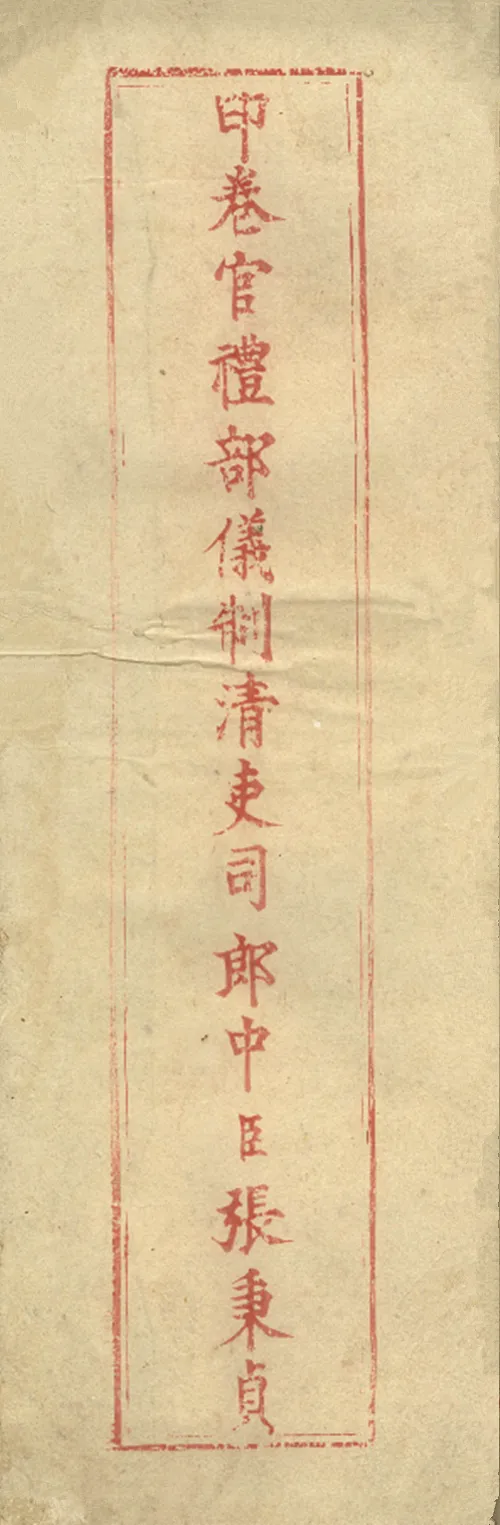 印卷官禮部儀制清吏司郎中臣張秉貞